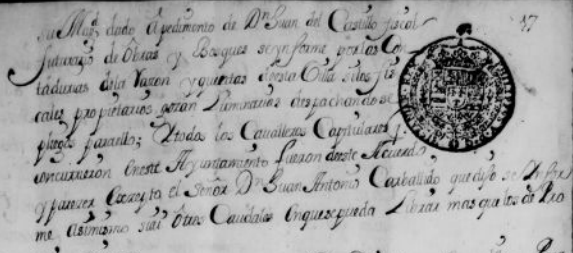 su Magd dado A pedimento de Dn Juan del Castillo fiscal 37
futurario de Obras y Bosques se ynforme por las Con
tadurias dela Razon y quentas desta Villa silos fis
cales propietarios gozan Luminarias despachandose
pliegos para ello; Y todos los Cavalleros Capitulares q
concurrieron eneste Ayuntamiento fueron deste Acuerdo
y parezer Excepto el Señor Dn Juan Antonio Carballido que dijo se Infor
me asimismo si ai Otros Caudales Enquesepueda Librar mas que los de Pro